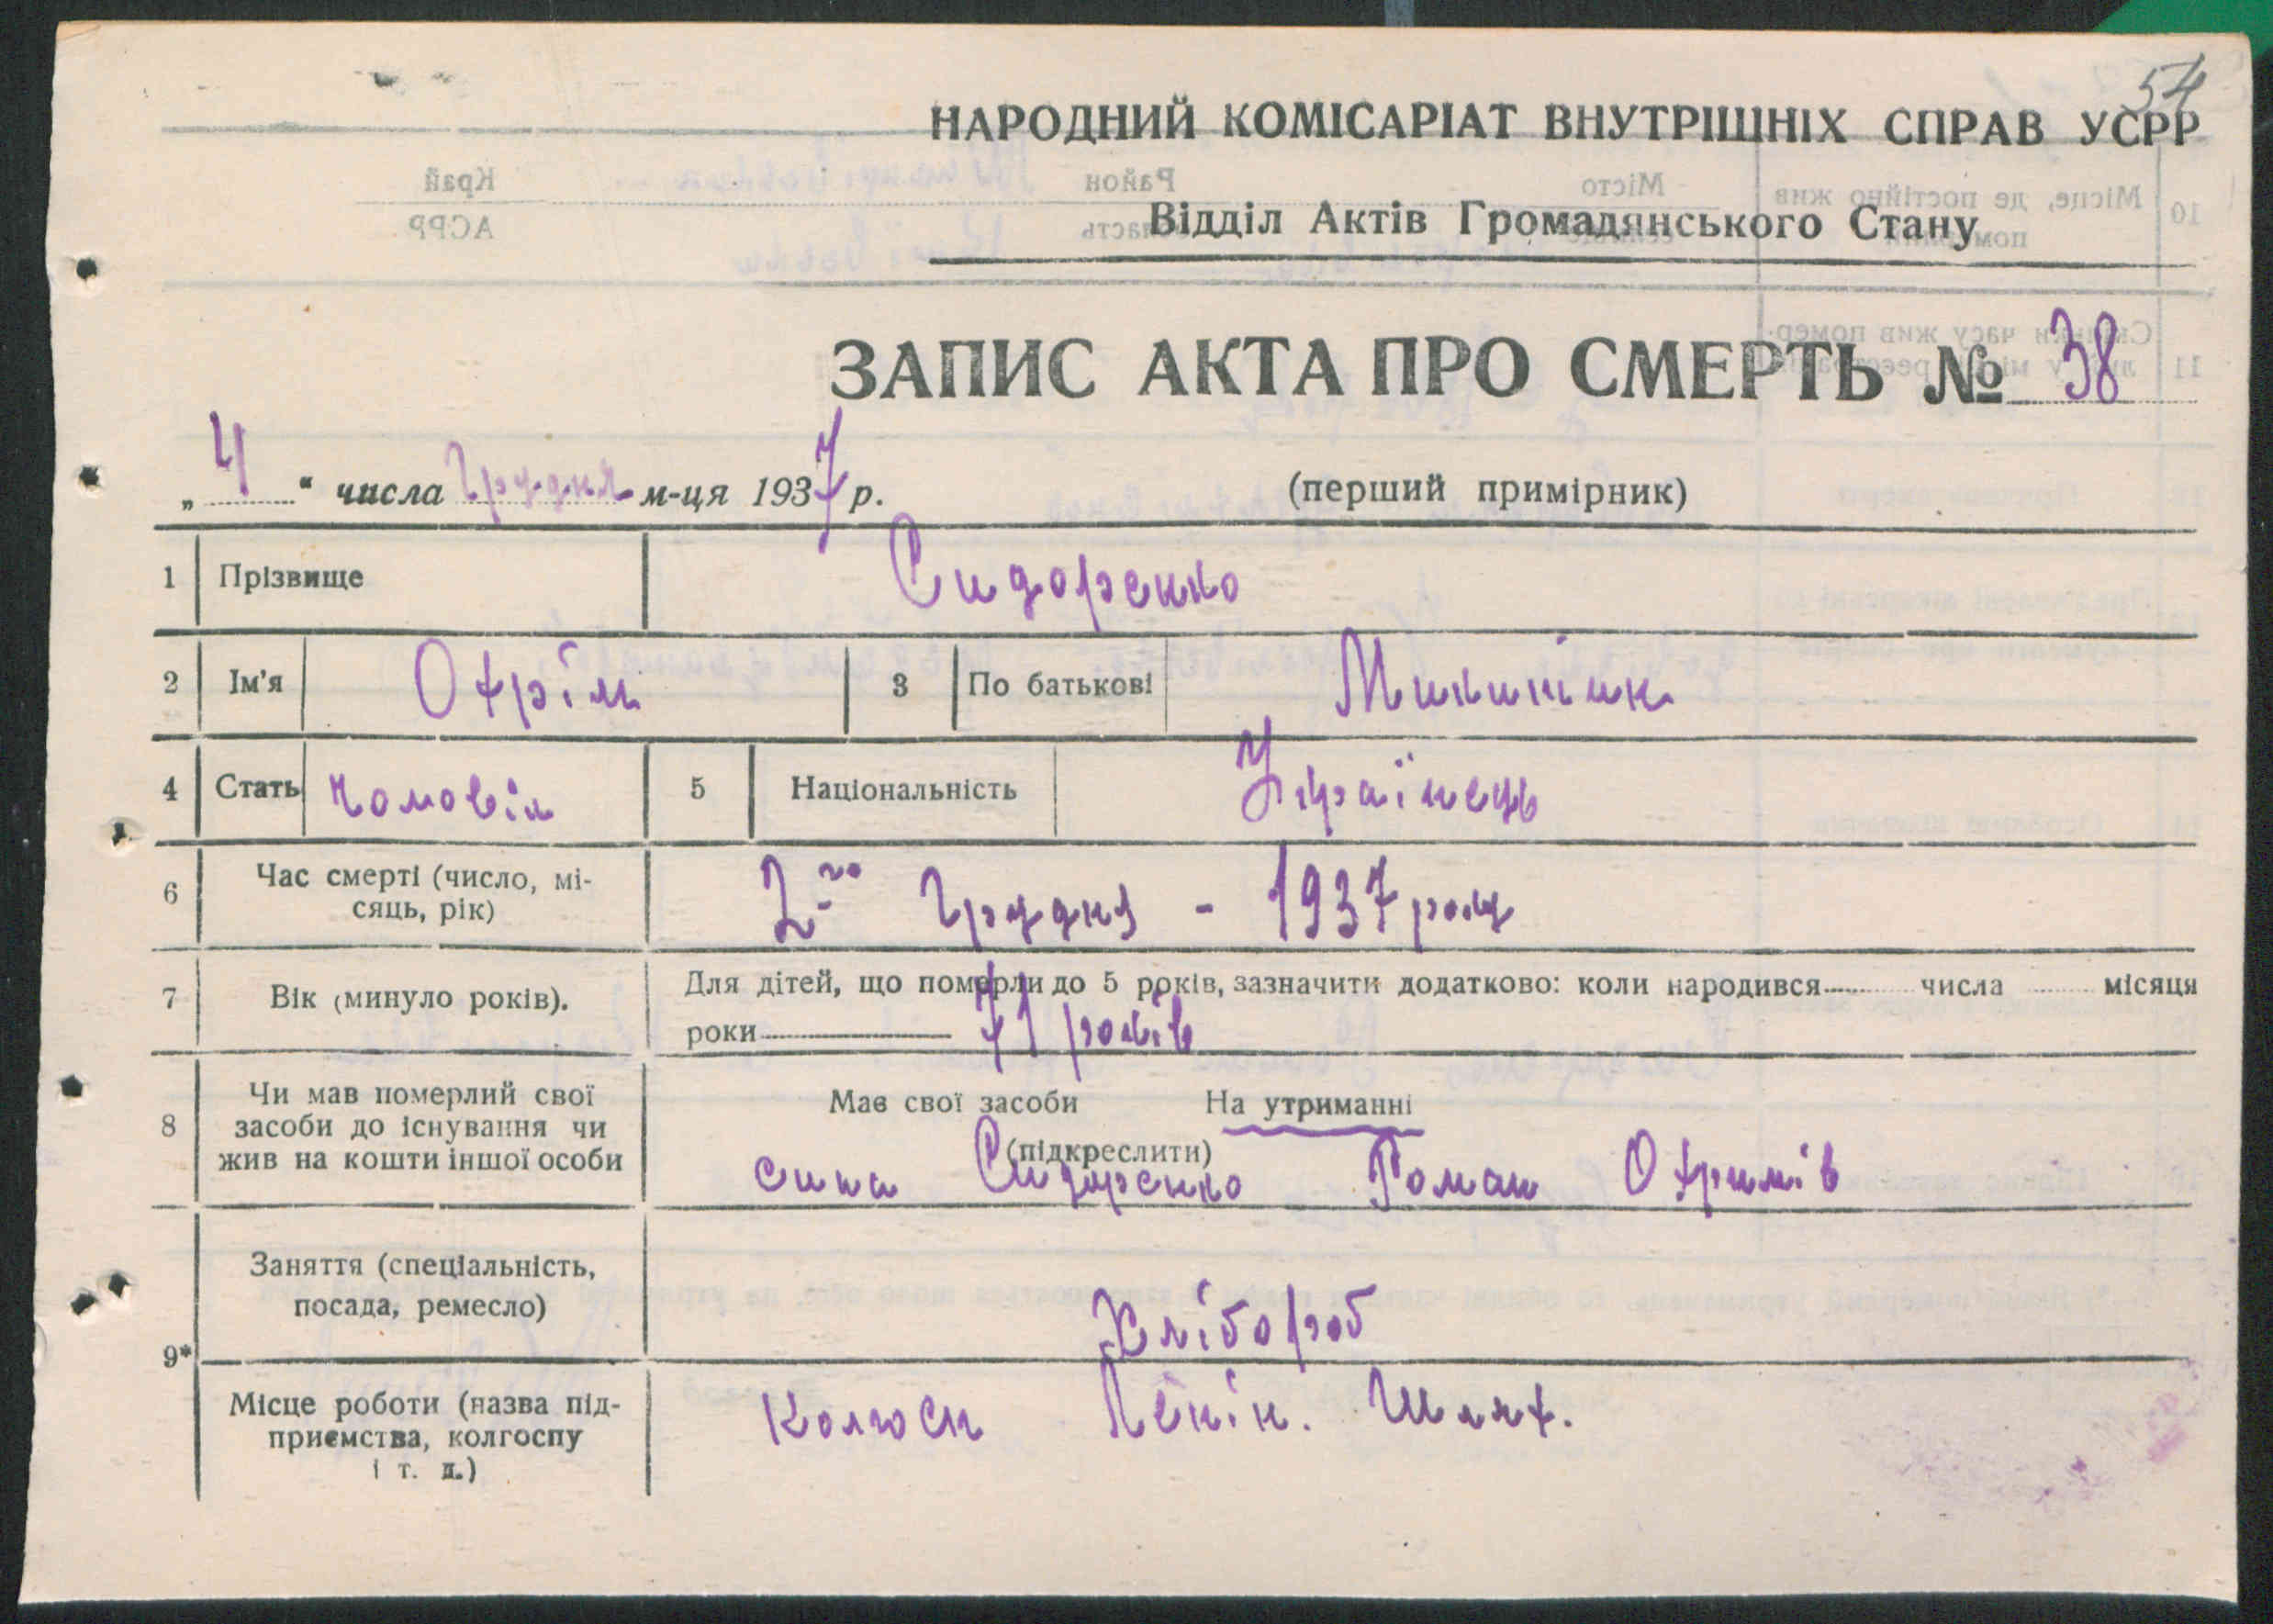 54
НАРОДНИЙ КОМІСАРІАТ ВНУТРІШНІХ СПРАВ УСРР
Відділ Актів Громадянського Стану
ЗАПИС АКТА ПРО СМЕРТЬ № 38
„ 4 “ числа Грудня м-ця 1937 р. (перший примірник)
1 Прізвище Сидоренко
2 Ім'я Охрім 3 По батькові
4 Стать чоловік 5 Національність Українець
6 Час смерті (число, мі-
сяць, рік) 2го Грудня - 1937 року
7 Вік (минуло років). Для дітей, що померли до 5 років, зазначити додатково: коли народився числа місяця
роки 71 років
8 Чи мав померлий свої
засоби до існування чи
жив на кошти іншої особи
Мав свої засоби На утриманні
(підкреслити)
сина Сидоренко Роман Охримів
9* Заняття (спеціальність,
посада, ремесло) Хлібороб
Місце роботи (назва під-
приємства, колгоспу
і т. д.) Колгосп Ленін. Шлях.